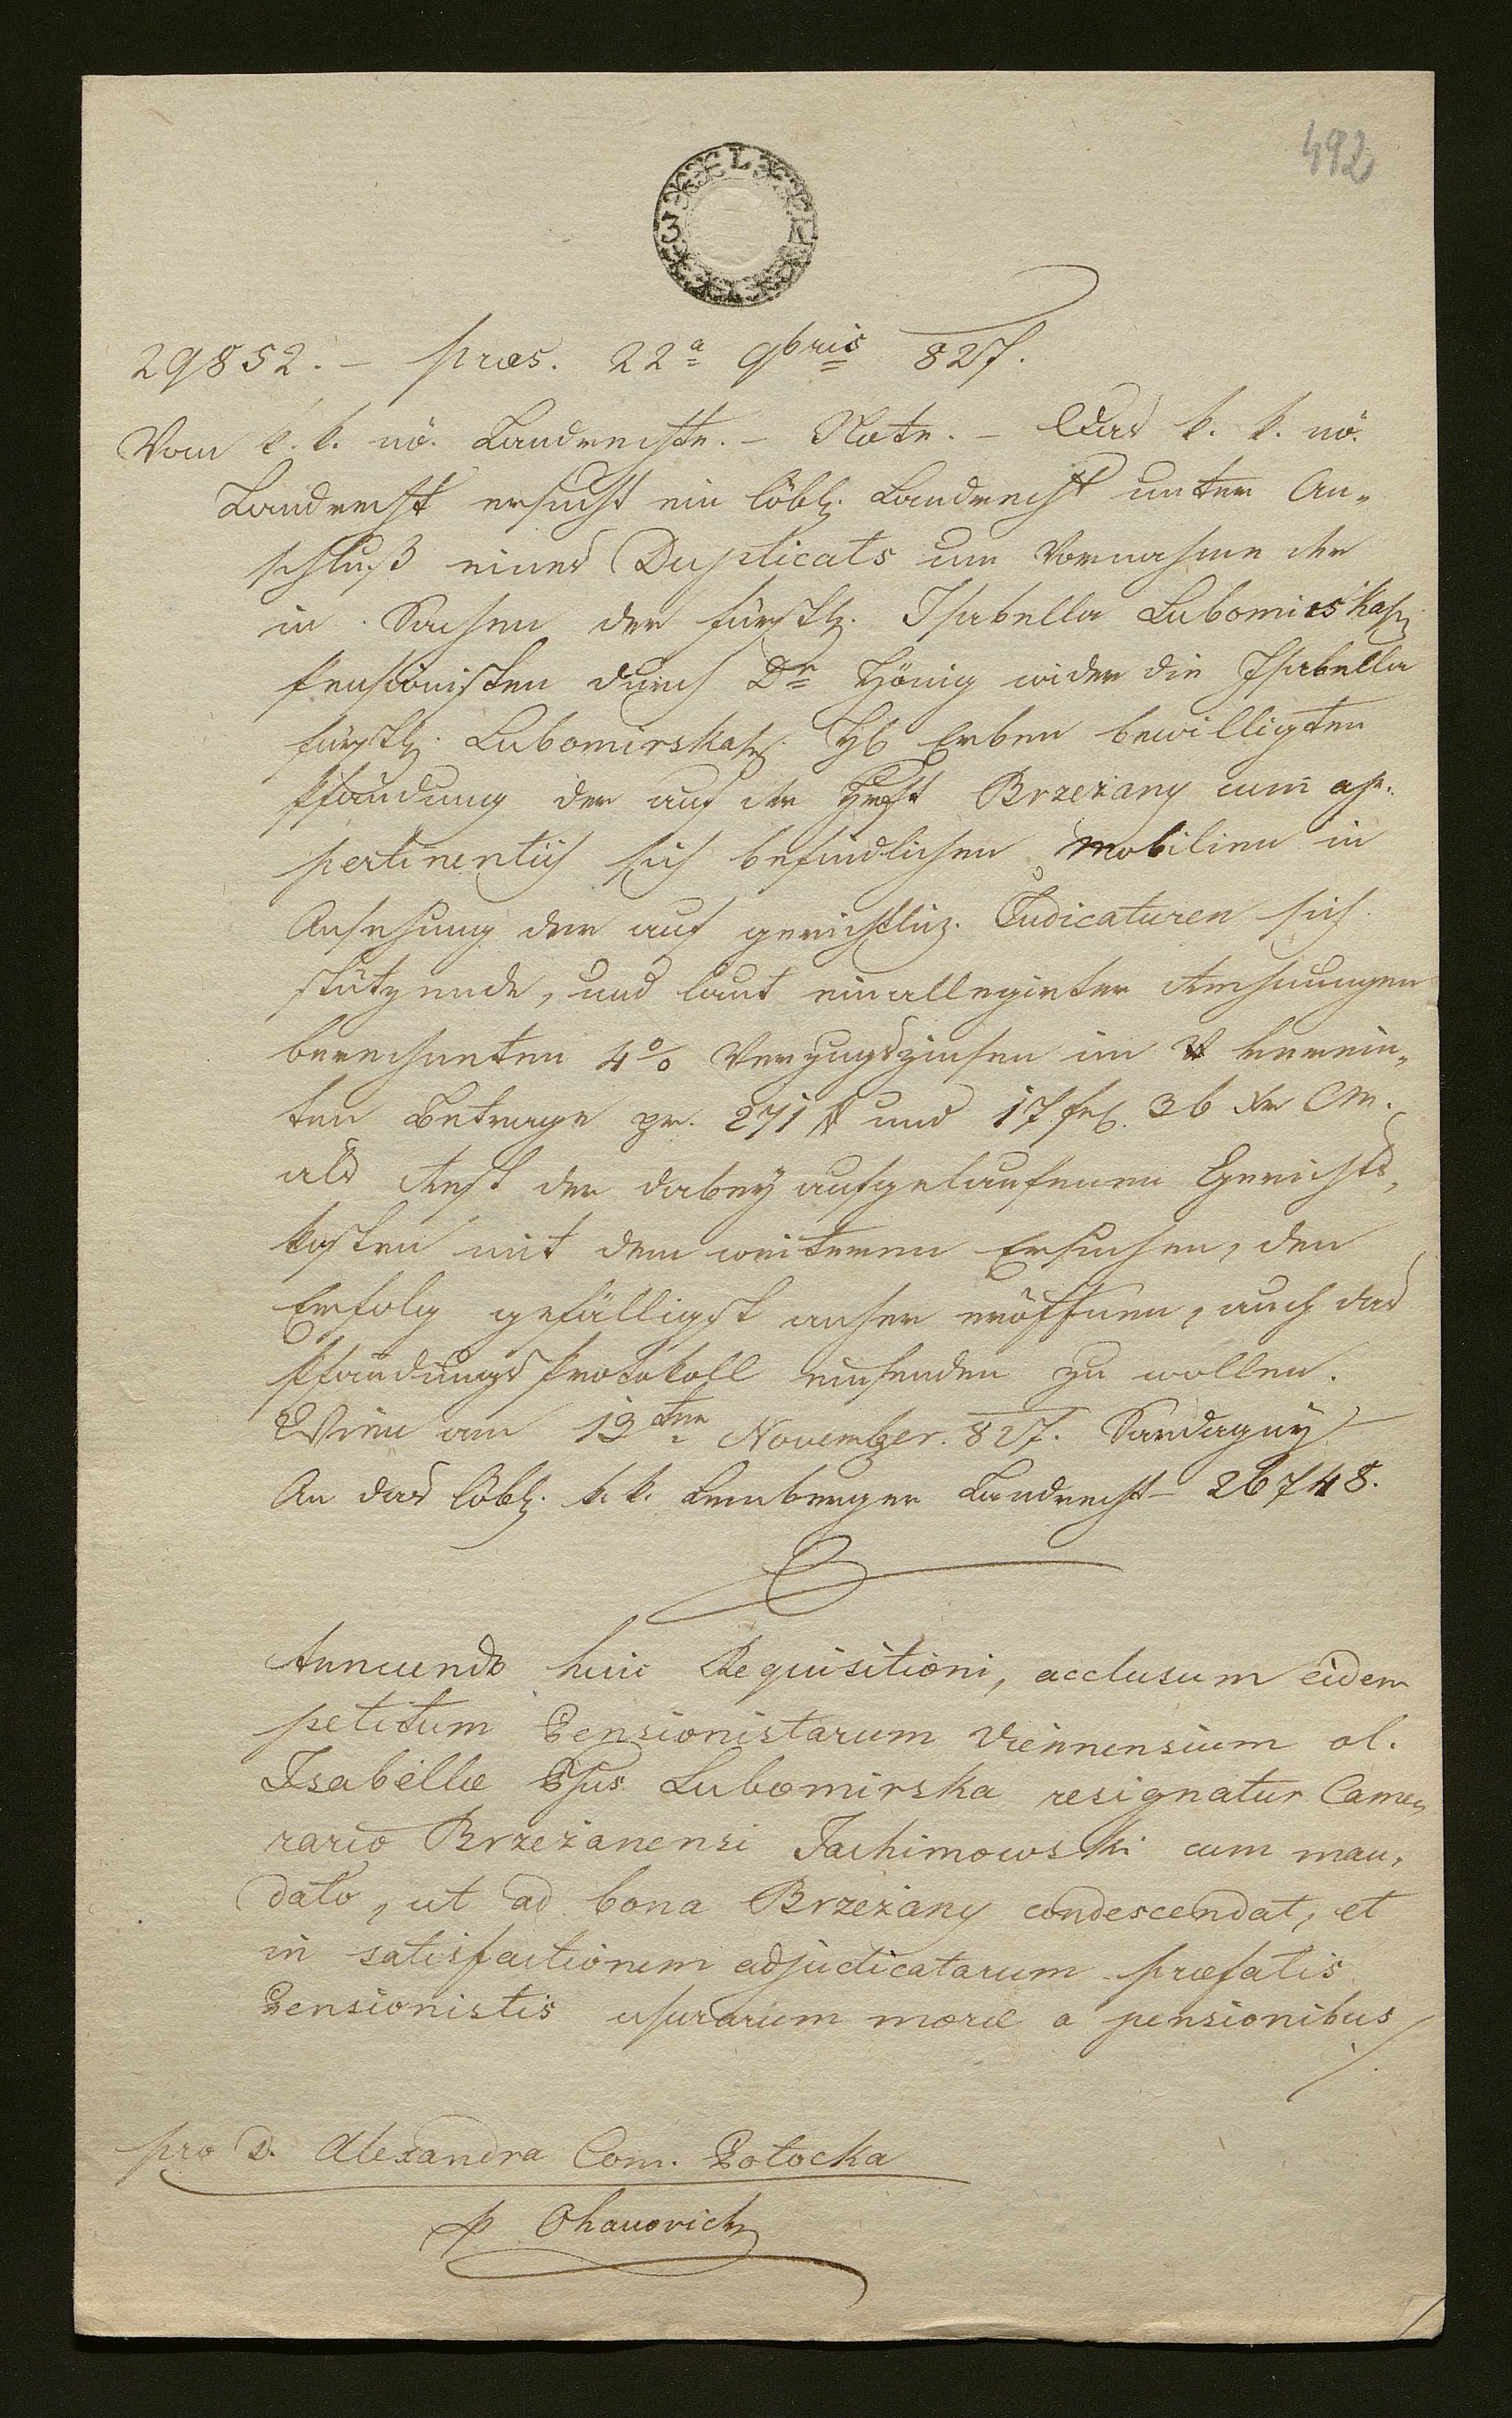 492
29852. – præs. 22ª 9bris 827.
Vom k. k. nö. Landrechte. – Note. – Das k. k. nö.
Landrecht ersucht ein löbl. Landrecht unter An-
schluß eines Duplicats um Vornahme der
in Sachen der fürstl. Isabella Lubomirskasch
Pensionisten durch Dr Hönig wider die Isabella
fürstl. Lubomirskasch. Erben bewilligten
Pfändung der auf der Hrft Brzeżany cum ap-
pertinentiis sich befindlichen Mobilien in
Ansehung der auf gerichtlich. Judicaturen sich
stützende, und laut einallegirter Rechnungen
berechneten 4% Verzugszinsen im verein-
ten Betrage pr. 271 # und 17 fl. 36 xr CM.
als Rest der dabey aufgelaufenen Gerichts-
kosten mit dem weiteren Ersuchen, den
Erfolg gefälligst anher eröffnen, auch das
Pfändungs Protokoll einsenden zu wollen.
Wien am 13ten November. 827. Sardagny
An das löbl. k. k. Lemberger Landrecht 26748.
Annuendo huic Requisitioni, acclusum eidem
petitum Pensionistarum Viennensium ol.
Isabellæ Lubomirska resignatur Came-
rario Brzeżanensi Jachimowski cum man-
dato, ut ad bona Brzeżany condescendat, et
in satisfactionem adjudicatarum præfatis
Pensionistis usurarum moræ a pensionibus
pro D. Alexandra Com. Potocka
p Ohanovich